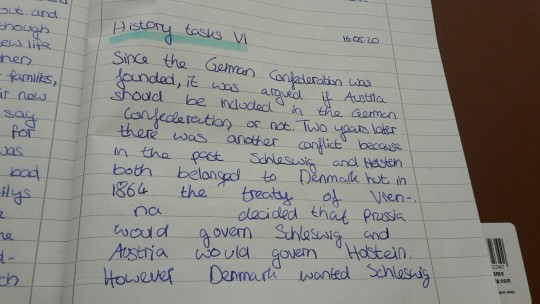 out and
though
ew life
hen
families,
ir now
say
for
was
bad
ilys
e
he
d-
ch
History tasks VI
16.05.20
Since the German Confederation was
founded, it was argued if Austria
should be included in the German
Confederation or not. Two years later
there was another conflict because
in the past Schleswig and Holstein
both belonged to Denmark but in
1864 the treaty of Vien-
na decided that Prussia
would govern Schleswig and
Austria would govern Holstein.
However Denmark wanted Schleswig